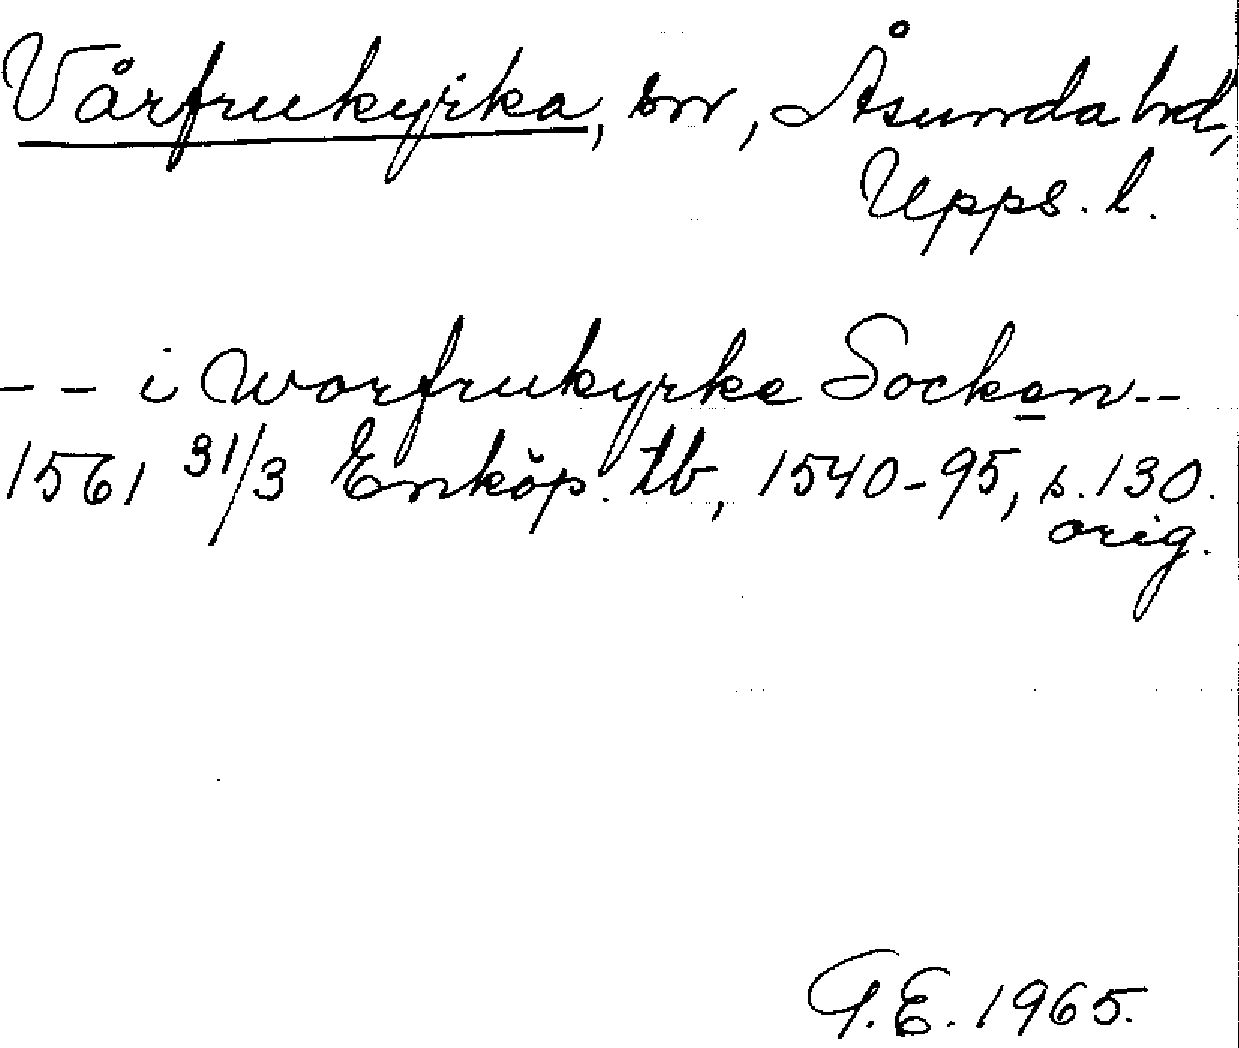 Vårfrukyrka, sn, Åsunda hd,
Upps. l.
-- i worfrukyrke Socken--
1561 31/3 Enköp. tb, 1540-95, s. 130.
orig.
G.E. 1965.